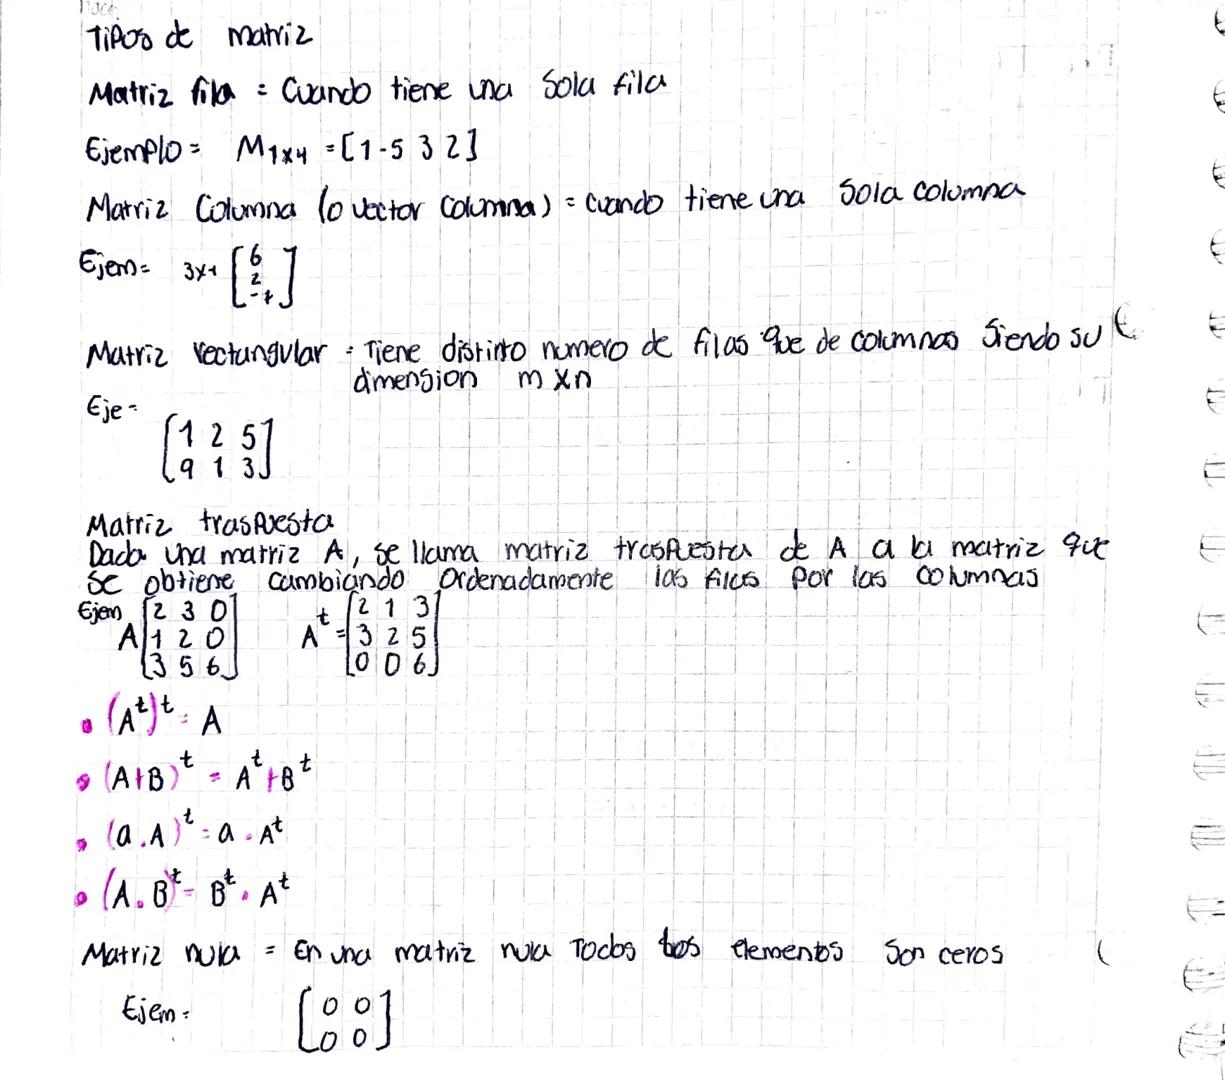 Tipos de matriz
Matriz fila = Cuando tiene una Sola fila
Ejemplo = M1x4 = [1 -5 3 2]
Matriz Columna (o vector columna) = cuando tiene una Sola columna
Ejem = 3x1 [6
2
-t]
Matriz rectangular = Tiene distinto numero de filas que de columnas Siendo su
dimension m x n
Eje =
[1 2 5
9 1 3]
Matriz traspuesta
Dada una matriz A, se llama matriz traspuesta de A a la matriz que
se obtiene cambiando Ordenadamente las filas por las columnas
Ejem A [2 3 0 A^t = [2 1 3
1 2 0 3 2 5
3 5 6] 0 0 6]
• (A^t)^t = A
• (A+B)^t = A^t + B^t
• (a.A)^t = a . A^t
• (A.B)^t = B^t . A^t
Matriz nula = En una matriz nula Todos los elementos Son ceros
Ejem =
[0 0
0 0]